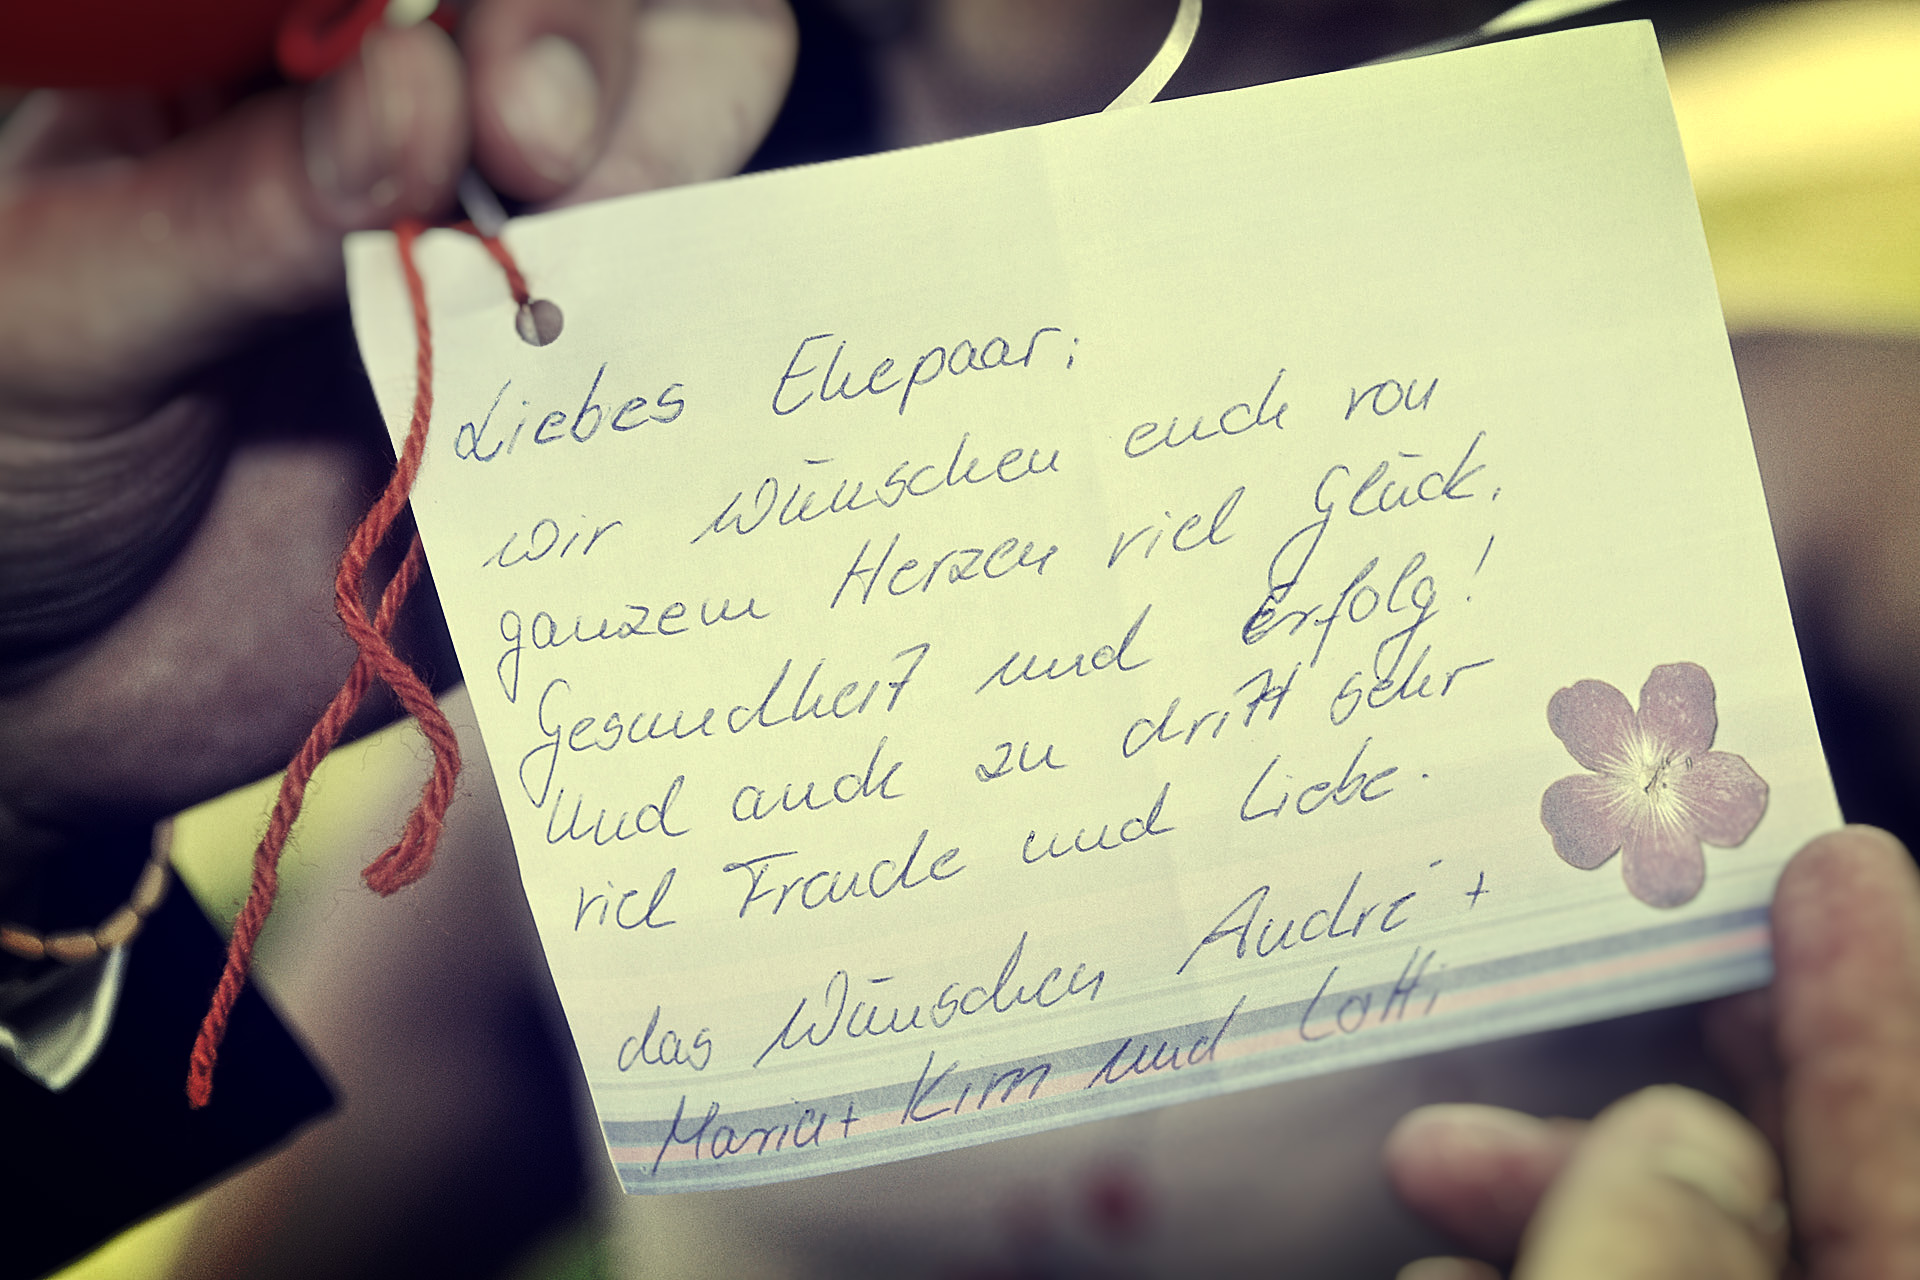 Liebes Ehepaar;
wir wünschen euch von
ganzem Herzen viel Glück,
Gesundheit und Erfolg!
Und auch zu dritt sehr
viel Freude und Liebe.
das wünschen André +
Maria + Kim und Lotti